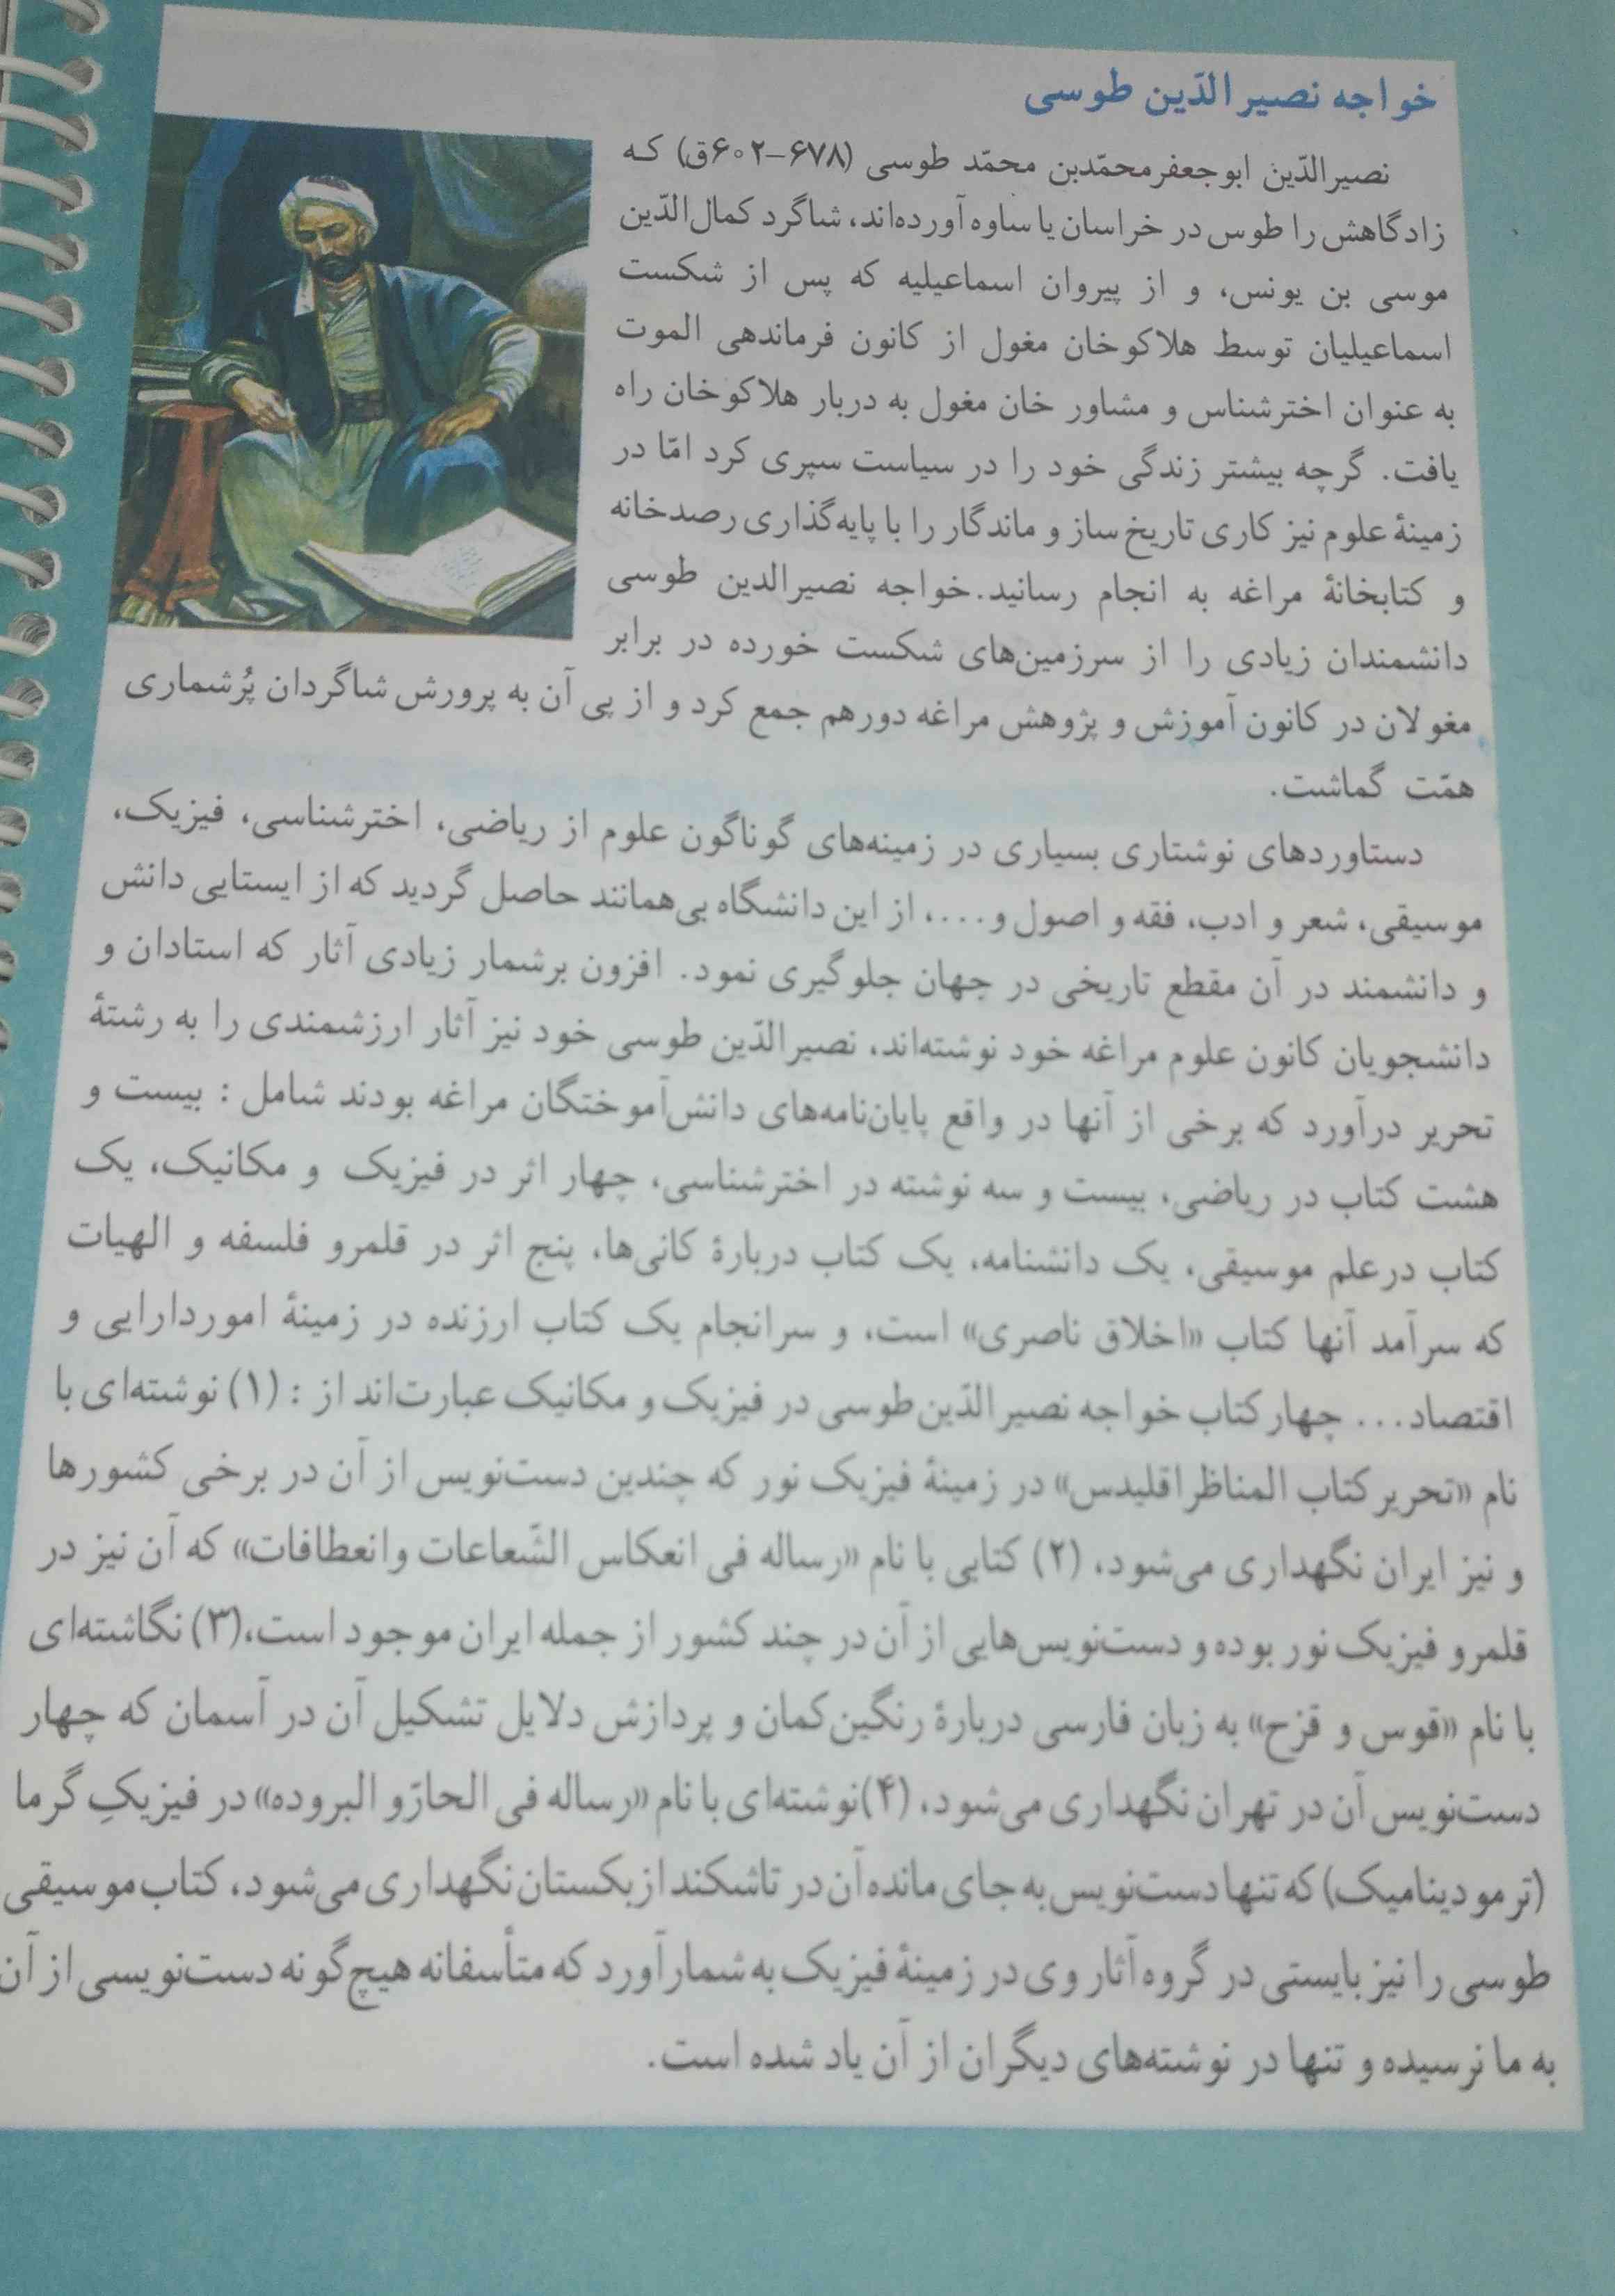 خواجه نصیر الدّین طوسی
نصیرالدّین ابوجعفرمحمّدبن محمّد طوسی (۶۷۸–۶۰۲ق) که
زادگاهش را طوس در خراسان یا ساوه آورده‌اند، شاگرد کمال‌الدّین
موسی بن یونس، و از پیروان اسماعیلیه که پس از شکست
اسماعیلیان توسط هلاکوخان مغول از کانون فرماندهی الموت
به عنوان اخترشناس و مشاور خان مغول به دربار هلاکوخان راه
یافت. گرچه بیشتر زندگی خود را در سیاست سپری کرد امّا در
زمینهٔ علوم نیز کاری تاریخ ساز و ماندگار را با پایه‌گذاری رصدخانه
و کتابخانهٔ مراغه به انجام رسانید.خواجه نصیرالدین طوسی
دانشمندان زیادی را از سرزمین‌های شکست خورده در برابر
مغولان در کانون آموزش و پژوهش مراغه دورهم جمع کرد و از پی آن به پرورش شاگردان پُرشماری
همّت گماشت.
دستاوردهای نوشتاری بسیاری در زمینه‌های گوناگون علوم از ریاضی، اخترشناسی، فیزیک،
موسیقی، شعر و ادب، فقه و اصول و....، از این دانشگاه بی‌همانند حاصل گردید که از ایستایی دانش
و دانشمند در آن مقطع تاریخی در جهان جلوگیری نمود. افزون برشمار زیادی آثار که استادان و
دانشجویان کانون علوم مراغه خود نوشته‌اند، نصیرالدّین طوسی خود نیز آثار ارزشمندی را به رشتهٔ
تحریر درآورد که برخی از آنها در واقع پایان‌نامه‌های دانش‌آموختگان مراغه بودند شامل : بیست و
هشت کتاب در ریاضی، بیست و سه نوشته در اخترشناسی، چهار اثر در فیزیک و مکانیک، یک
کتاب درعلم موسیقی، یک دانشنامه، یک کتاب دربارهٔ کانی‌ها، پنج اثر در قلمرو فلسفه و الهیات
که سرآمد آنها کتاب «اخلاق ناصری» است، و سرانجام یک کتاب ارزنده در زمینهٔ اموردارایی و
اقتصاد... چهارکتاب خواجه نصیرالدّین‌طوسی در فیزیک و مکانیک عبارت‌اند از : (۱) نوشته‌ای با
نام «تحریرکتاب المناظراقلیدس» در زمینهٔ فیزیک نور که چندین دست‌نویس از آن در برخی کشورها
و نیز ایران نگهداری می‌شود، (۲) کتابی با نام «رساله فی انعکاس الشّعاعات وانعطافات» که آن نیز در
قلمرو فیزیک نور بوده و دست‌نویس‌هایی از آن در چند کشور از جمله ایران موجود است،(۳) نگاشته‌ای
با نام «قوس و قزح» به زبان فارسی دربارهٔ رنگین‌کمان و پردازش دلایل تشکیل آن در آسمان که چهار
دست‌نویس آن در تهران نگهداری می‌شود، (۴)نوشته‌ای با نام «رساله فی الحارّو البروده» در فیزیکِ گرما
(ترمودینامیک) که تنها دست‌نویس به جای مانده آن در تاشکند ازبکستان نگهداری می‌شود، کتاب موسیقی
طوسی را نیز بایستی در گروه آثار وی در زمینهٔ فیزیک به شمارآورد که متأسفانه هیچ‌گونه دست‌نویسی از آن
به ما نرسیده و تنها در نوشته‌های دیگران از آن یاد شده است.